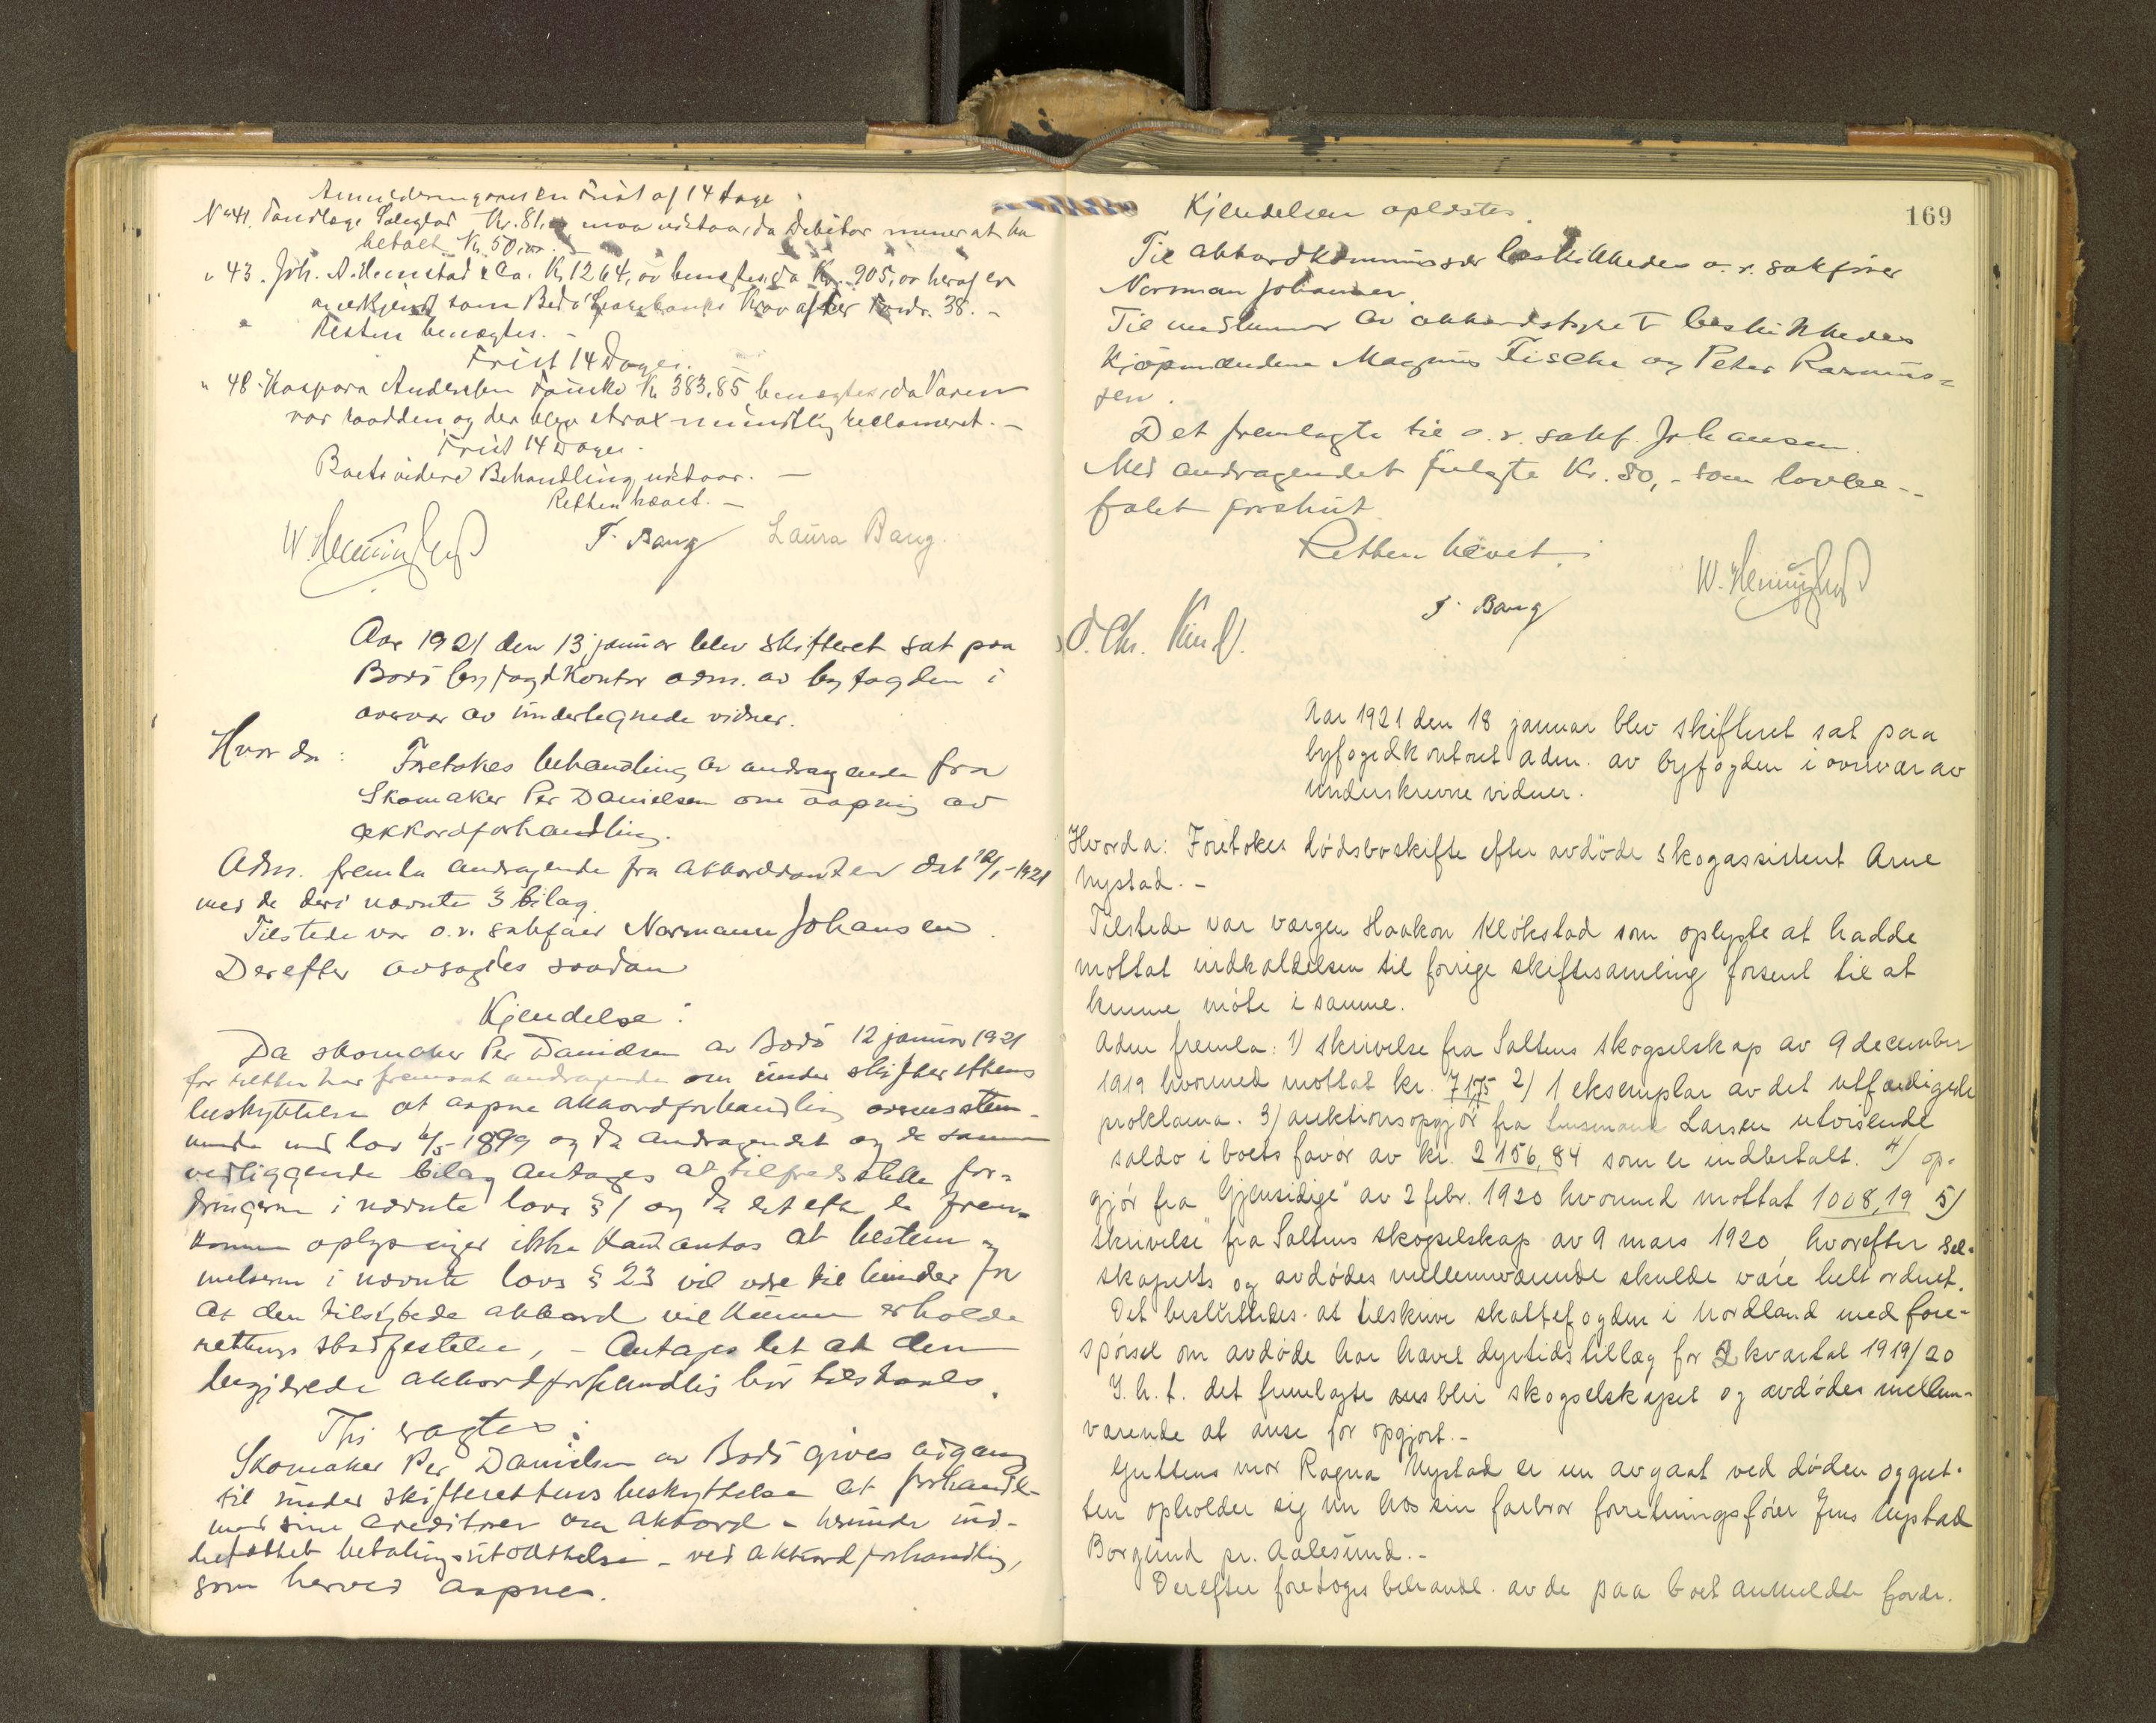 Anmelderen gives en Frist af 14 Dage
No 41. Kr. 81, maa udstaa, da Debitor mener at ha
betalt Kr. 50,00. -
" 43. Joh. A. Hernstad & Co. Kr. 1264,00 benegtes, da Kr. 905,00 heraf er
anerkjendt som Bodø Sparebanks Krav efter Fordr. 38. -
Resten benægtes. -
Frist 14 Dage.
" 48 Kaspara Andersen Kr. 383,85 benægtes, da Varen
var raadden og der blev strax mundtlig reclameret. -
Frist 14 Dage.
Boets videre Behandling udstaar. -
Retten hævet. -
F. Bang Laura Bang.
Aar 1921 den 13 januar blev skifteret sat paa
Bodø byfogdkontor adm. av byfogden i
overvær av undertegnede vidner.
Hvorda: Foretokes behandling av andragende fra
Skomaker Per Danielsen om aapning av
akkordforhandling.
Adm. fremla andragende fra akkordanten dat 12/1-1921
med de deri nævnte 3 bilag.
Tilstede var o.r. sakfører Normann Johansen.
Derefter avsagdes saadan
Kjendelse:
Da skomaker Per Danielsen av Bodø 12 januar 1921
for retten har fremsat andragende om under skifterettens
beskyttelse at aapne akkordforhandling overensstem-
mende med lov 6/5-1899 og da andragendet og de samme
vedliggende bilag antages at tilfredsstille for-
dringerne i nævnte lovs § 1 og da det efter de frem-
komne oplysninger ikke kan antas at bestem-
melserne i nævnte lovs § 23 vil være til hinder for
at den tilsigtede akkord vil kunne erholde
rettens stadfestelse, - Antages det at den
begjærede akkordforhandling bør tilstaaes.
Thi eragtes:
Skomaker Per Danielsen av Bodø gives adgang
til under skifterettens beskyttelse at forhandle
med sine creditorer om akkord - herunder ind-
befattet betalingsutsættelse - ved akkordforhandling,
som herved aapnes.
169
Kjendelsen oplæstes.
Til akkordkommissær beskikkedes o.r. sakfører
Norman Johansen.
Til medlemmer av akkordstyret beskikkedes
Kjøpmændene Magnus Fische og Peter Rasmus-
sen.
Det fremlagte til o.r. sakf. Johansen.
Med andragendet fulgte Kr. 80,- som lovbe-
falet forskut
Retten hævet.
F. Bang
O. Chr. Kind.
Aar 1921 den 18 januar blev skifteret sat paa
byfogedkontoret adm. av byfogden i overvær av
underskrevne vidner.
Hvorda: Foretokes dødsboskifte efter avdøde skogassistent Arne
Nystad. -
Tilstede var værgen Haakon Kløkstad som oplyste at hadde
mottat indkaldelsen til forrige skiftesamling forsent til at
kunne møte i samme.
Adm fremla: 1) skrivelse fra Saltens skogselskap av 9 december
1919 hvormed mottat kr. 71,75 2) 1 eksemplar av det utfærdigede
proklama. 3) auktionsopgjør fra Lensmand Larsen utvisende
saldo i boets favør av kr. 2156,84 som er indbetalt. 4) op-
gjør fra "Gjensidige" av 2 febr. 1920 hvormed mottat 1008,19 5)
skrivelse fra Saltens skogselskap av 9 mars 1920 hvorefter sel-
skapets og avdødes mellemværende skulde være helt ordnet.
Det besluttedes at tilskrive skattefogden i Nordland med fore-
spørsel om avdøde har hævet dyrtidstillæg for 2 kvartal 1919/20
I. h. t. det fremlagte blir skogselskapet og avdødes mellem-
værende at anse for opgjort. -
Guttens mor Ragna Nystad er nu avgaat ved døden og gut-
ten opholder sig nu hos sin farbror forretningsfører Jens Nystad
Borgund pr. Aalesund. -
Derefter foretoges behandl. av de paa boet anmeldte fordr.